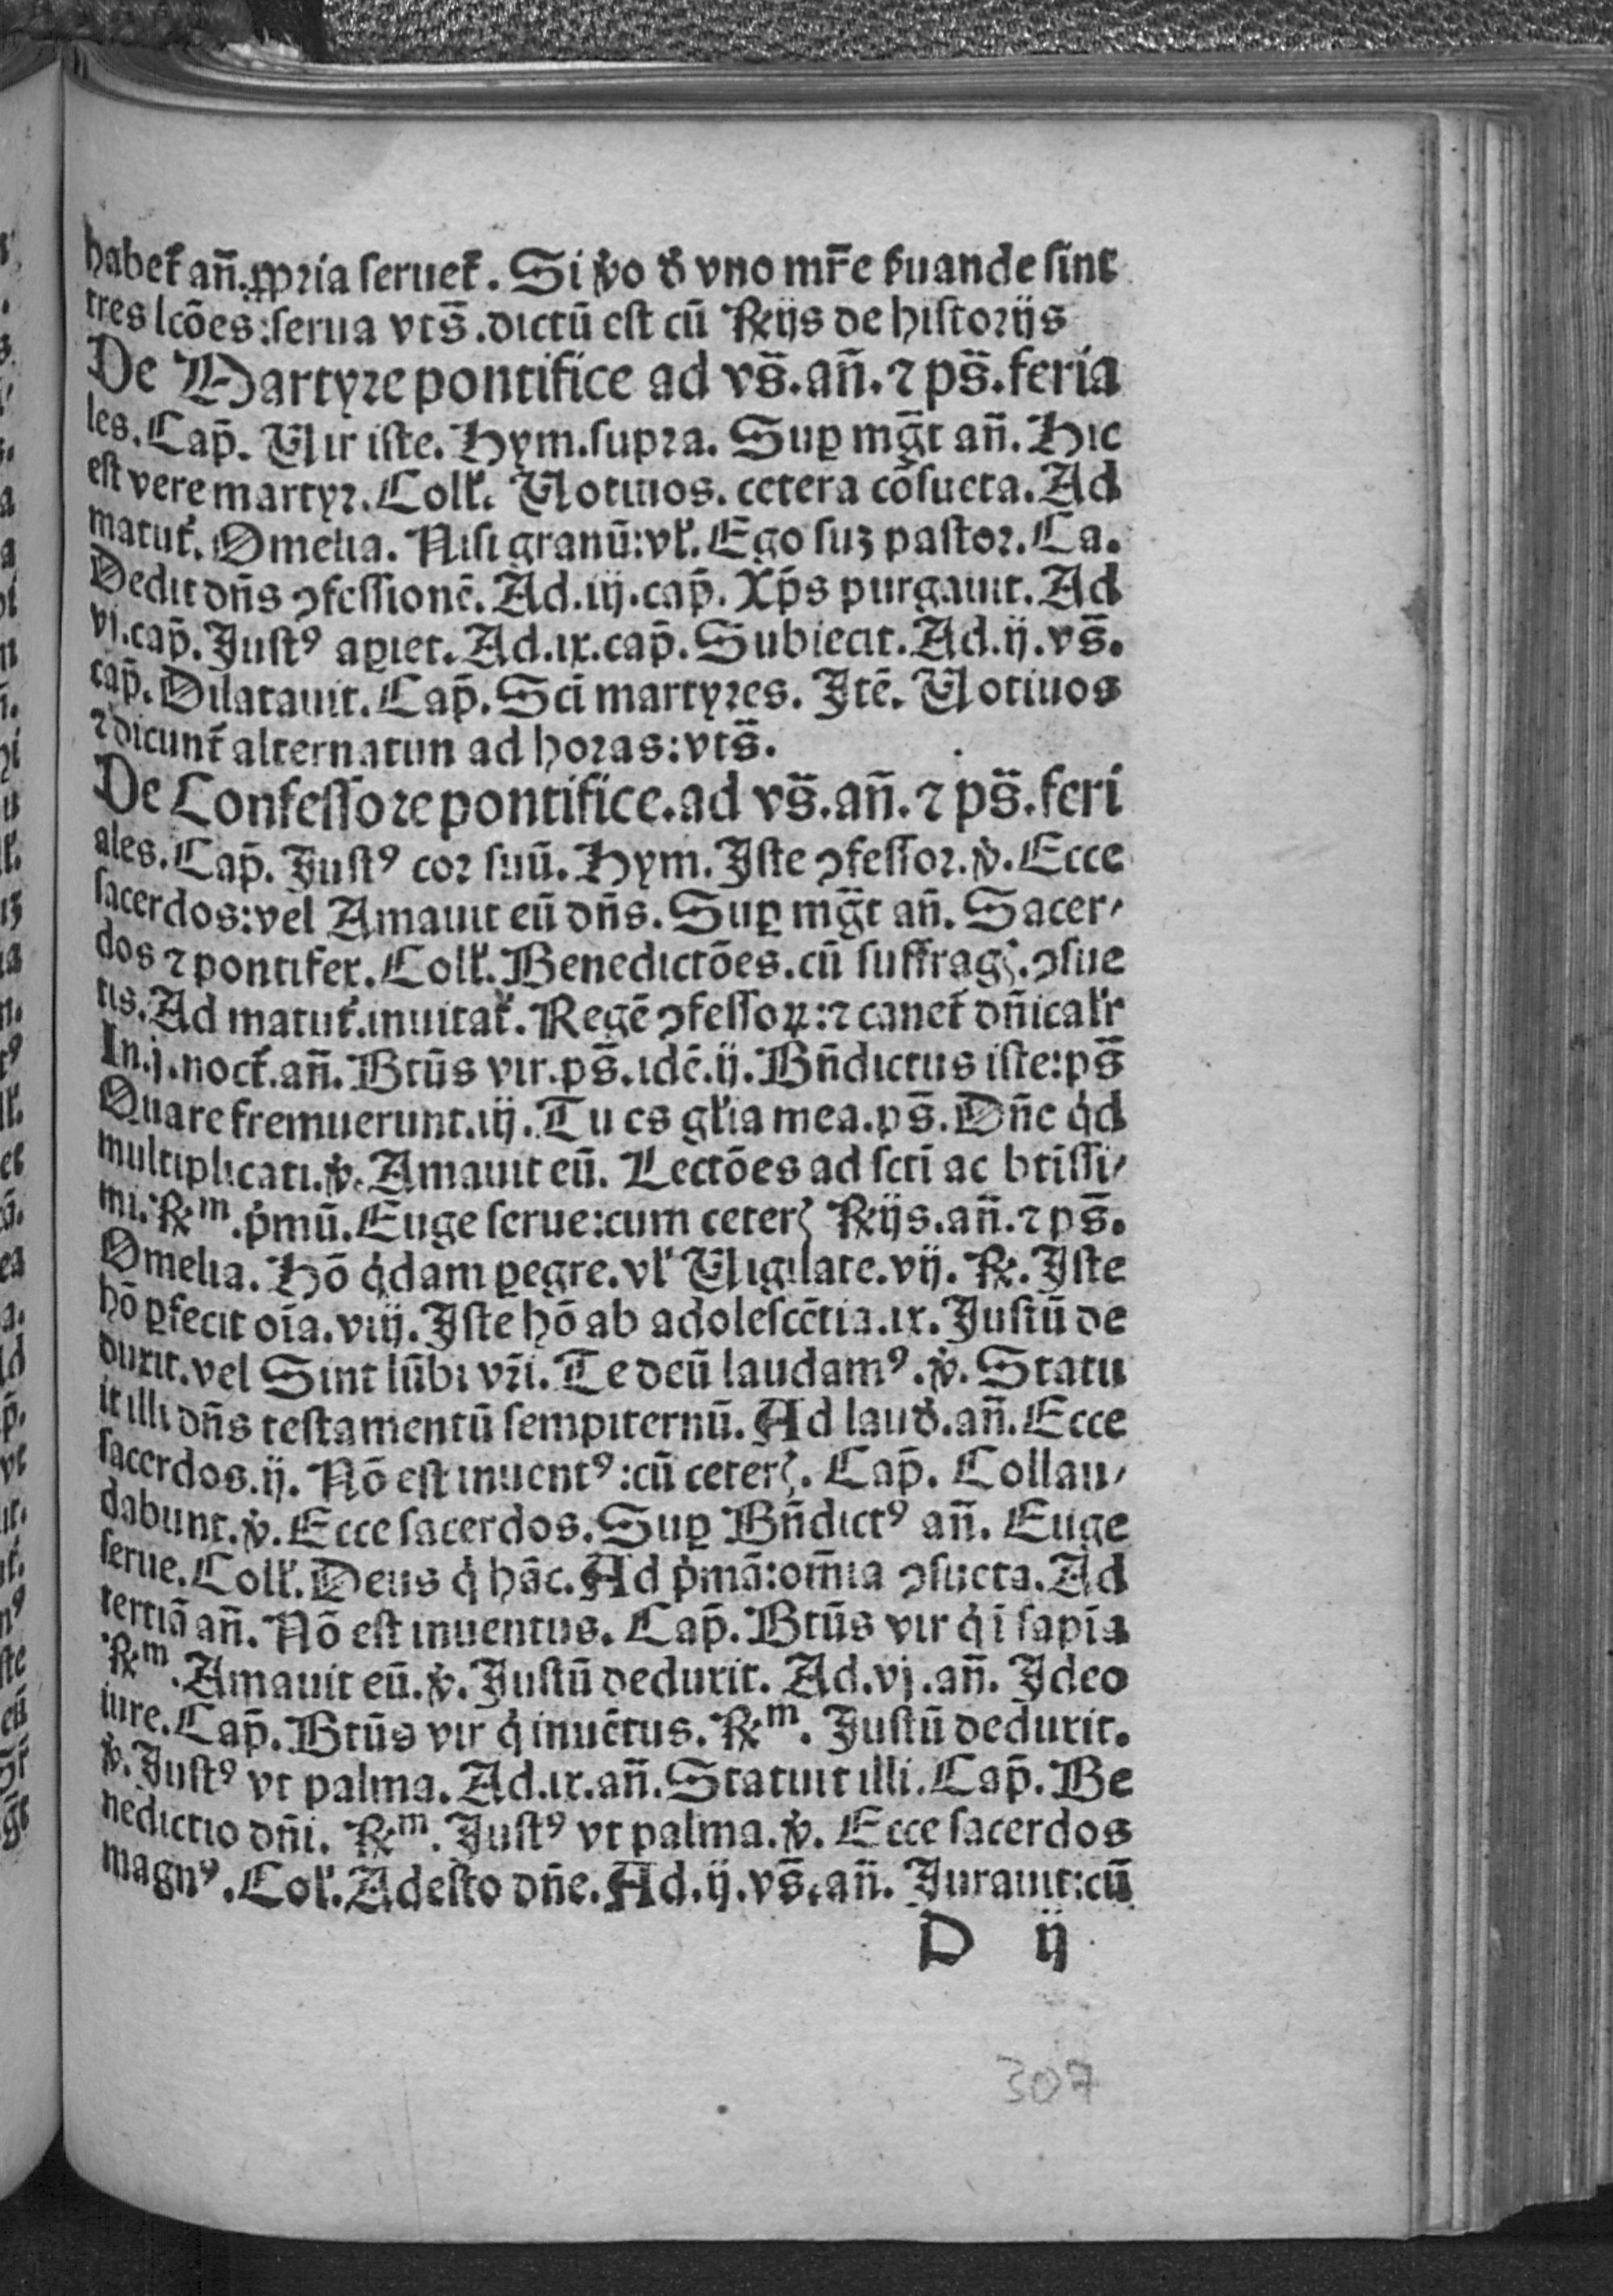 habet᷑ an̄. ꝓpria ſeruet᷑. Si v̊o ꝺ̾ vno mr̄e ẜuande ſint
tres lcōes: ſerua vts̄. dictū eſt cū ℟ijs de hiſtorijs
De Martyre pontifice ad vs̄. an̄. ⁊ ps̄. feria
les. Cap̄. Vir iſte. Hym. ſupra. Suꝑ mḡt an̄. Hic
eſt vere martyr. Coll̓. Votiuos. cetera cōſueta. Ad
matut᷑. Omelia. Niſi granū: vl̓. Ego ſuꝫ paſtor. Ca.
Dedit dn̄s ↄfeſſionē. Ad. iij. cap̄. Xp̄s purgauit. Ad
vj. cap̄. Juſtꝰ aꝑiet. Ad. ix. cap̄. Subiecit. Ad. ij. vs̄.
cap̄. Dilatauit. Cap̄. Sci̅ martyres. Jtē. Votiuos
⁊ dicunt᷑ alternatim ad horas: vts̄.
De Confeſſore pontifice. ad vs̄. an̄. ⁊ ps̄. feri
ales. Cap̄. Juſtꝰ cor ſuū. Hym. Jſte ↄfeſſor. ℣. Ecce
ſacerdos: vel Amauit eū dn̄s. Suꝑ mḡt an̄. Sacer⸗
dos ⁊ pontifex. Coll̓. Benedictōes. cū ſuffragꝭ. ↄſue
tis. Ad matut᷑. inuitat᷑. Regē ↄfeſſoꝝ: ⁊ canet᷑ dn̄ical̓r
In. j. noct᷑. an̄. Btūs vir. ps̄. idē. ij. Bn̄dictus iſte: ps̄
Quare fremuerunt. iij. Tu es gl̓ia mea. ps̄. Dn̄e qͥd
multiplicati. ℣. Amauit eū. Lectōes ad ſcti̅ ac bti̅ſſi⸗
mi. ℟ᵐ. pͥmū. Euge ſerue: cum ceterꝭ ℟ijs. an̄. ⁊ ps̄.
Omelia. Hō qͥdam ꝑegre. vl̓ Vigilate. vij. ℟. Jſte
hō ꝑfecit oi̅a. viij. Jſte hō ab adoleſcētia. ix. Juſtū de
duxit. vel Sint lūbi vr̄i. Te deū laudamꝰ. ℣. Statu
it illi dn̄s teſtamentū ſempiternū. Ad lauꝺ̾. an̄. Ecce
ſacerdos. ij. Nō eſt inuentꝰ: cū ceterꝭ. Cap̄. Collau⸗
dabunt. ℣. Ecce ſacerdos. Suꝑ Bn̄dictꝰ an̄. Euge
ſerue. Coll̓. Deus qͥ hāc. Ad pͥmā: om̄ia ↄſueta. Ad
tertiā an̄. Nō eſt inuentus. Cap̄. Btūs vir qͥ i̅ ſapi̅a
℟ᵐ. Amauit eū. ℣. Juſtū deduxit. Ad. vj. an̄. Jdeo
iure. Cap̄. Btūs vir qͥ inuētus. ℟ᵐ. Juſtū deduxit.
℣. Juſtꝰ vt palma. Ad. ix. an̄. Statuit illi. Cap̄. Be
nedictio dn̄i. ℟ᵐ. Juſtꝰ vt palma. ℣. Ecce ſacerdos
magnꝰ. Col̓. Adeſto dn̄e. Ad. ij. vs̄. an̄. Jurauit: cū
D ij
307